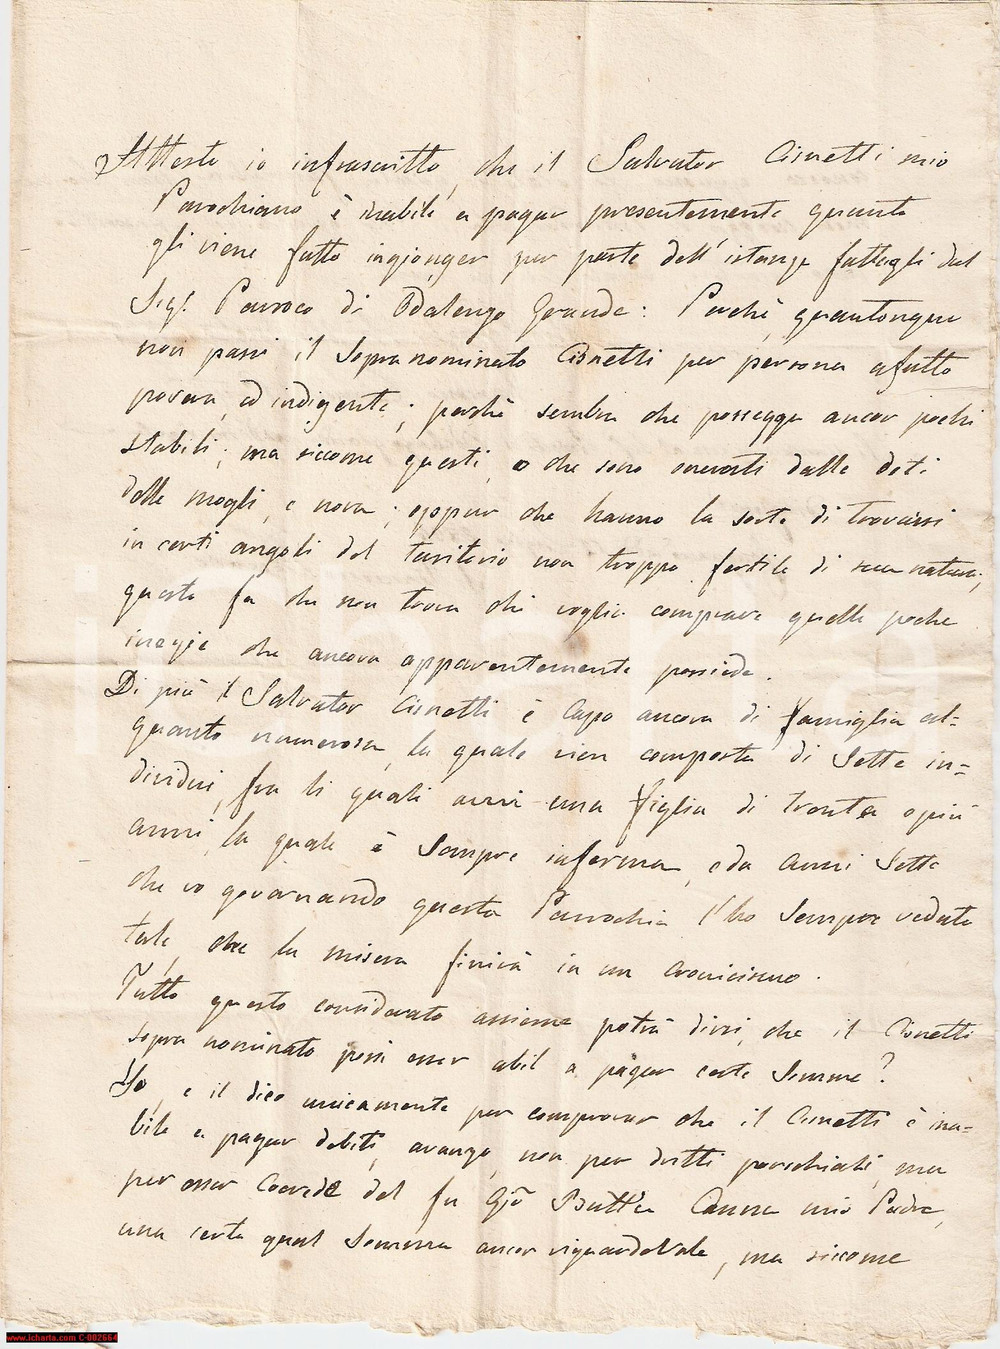 Attesto io infrascritto, che il Salvator Cisnetti mio
Parochiano è inabile a pagar presentemente quanto
gli viene fatto ingionger per parte dell' istanza fattagli dal
Sigr. Parroco di Odalengo Grande: Perchè quantonque
non passi il sopranominato Cisnetti per persona afatto
povera, ed indigente; perchè sembra che possegga ancor pochi
stabili; ma siccome questi, o che sono onerati dalle doti
delle mogli, e nora; oppur che hanno la sorte di trovarsi
in certi angoli del territorio non troppo fertile di sua natura;
questo fa che non trova chi voglia comprare quelle poche
inezie che ancora apparentemente possiede.
Di più il Salvator Cisnetti è Capo ancora di famiglia al=
quanto numerosa, la quale vien composta di Sette in=
dividui, fra li quali avvi una figlia di trenta e più
anni, la quale è sempre inferma, e da anni Sette
che vo governando questa Parrochia l'ho sempre veduta
tale, che la misera finirà in un cronicismo.
Tutto questo considerato assieme potrà dirsi, che il Cisnetti
sopra nominato possi esser abil a pagar certe Somme?
Io, e il dico unicamente per comprovar che il Cisnetti è ina=
bile a pagar debiti, avanzo, non per dritti parochiali, ma
per esser Coerede del fu Gjo Batt'a Canna mio Padre,
una certa qual Somma ancor riguardevole, ma siccome
www.icharta.com C-002664